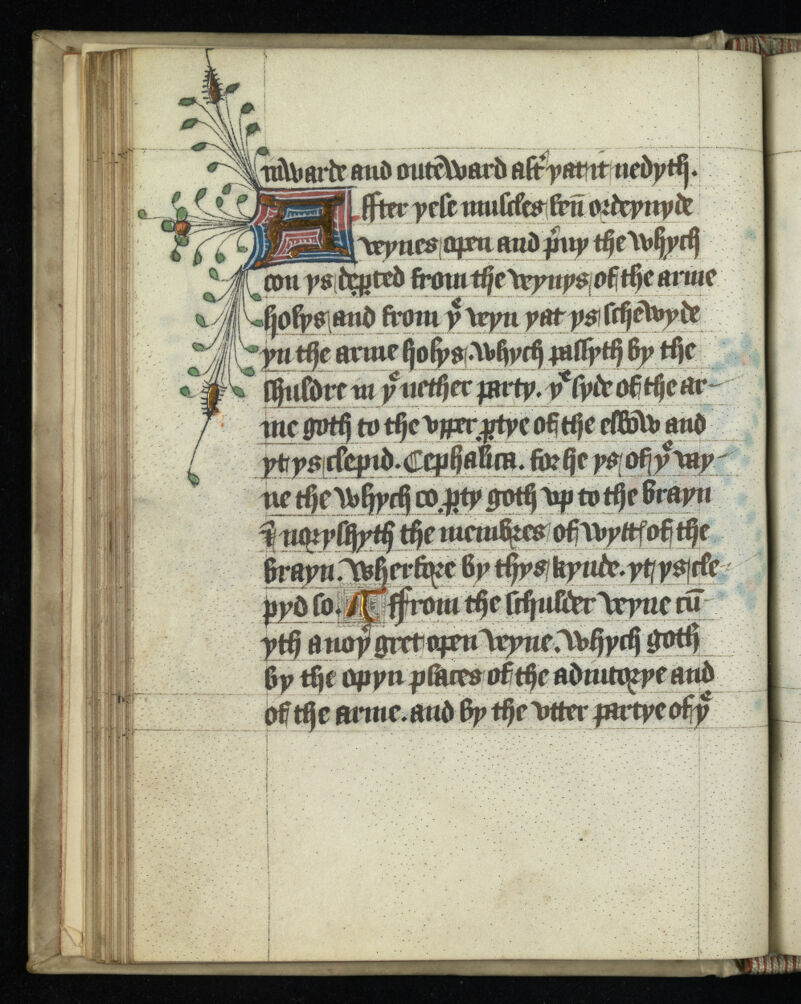 inwarde and outeward aftʳ yat it nedyth.
Affter yese muscles ben̄ ordeynyde
veynes apen and p̉uy the whych
con ys dep̱ted from the veynys of the arme
holys and from yᵉ veyn yat ys schewyde
yn the arme holys. whych passyth by the
shuldre in yᵉ nether party. yᵉ syde of the ar-
me goth to the vpper p̱tye of the elbow and
yt ys clepid. Cephalica. for he ys of yᵉ vay-
ne the whych co p̱ty goth vp to the brayn
⁊ noryshyth the membres of wytt of the
brayn. wherfore by thys kynde. yt ys cle-
pyd so. ¶ ffrom the schulder veyne cū-
yth a noyᵉ gret open veyne. whych goth
by the opyn places of the adiutorye and
of the arme. and by the vtter partye of yᵉ